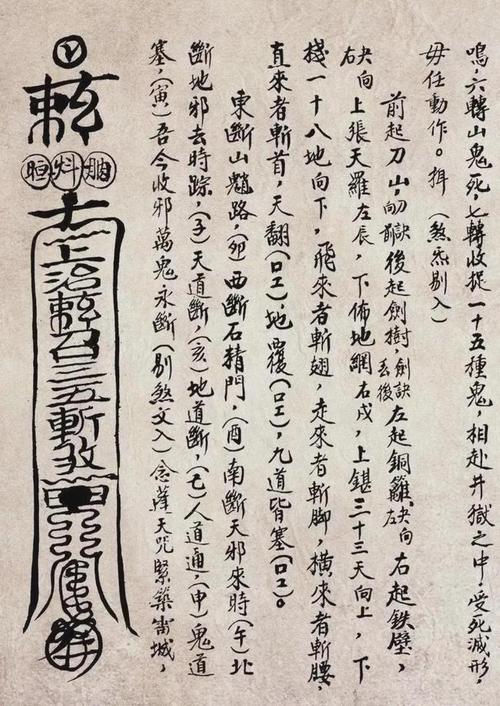 鳴六轉山鬼死，七轉收捉一十五種鬼，相赴井獄之中，受死滅形，
毋任動作。揖（煞炁剔入）
前起刀山，刀訣向獄後起劍樹，劍訣丟後左起銅籬，左訣向右起鉄壁，
右訣向上張天羅左辰，下佈地網右戌，上鍖三十三天向上，下
棧一十八地向下，飛來者斬翅，走來者斬脚，橫來者斬腰，
直來者斬首，天翻（口工），地覆（口工），九道皆塞（口工）。
東斷山魈路，（卯）西斷石精門，（酉）南斷天邪來時（午）北
斷地邪去時踪，（子）天道斷，（亥）地道斷（巳）人道通，（申）鬼道
塞，（寅）吾今收邪萬鬼永斷（剔煞文入）念蓬天咒緊築雷城，
上治敕召三五斬攻